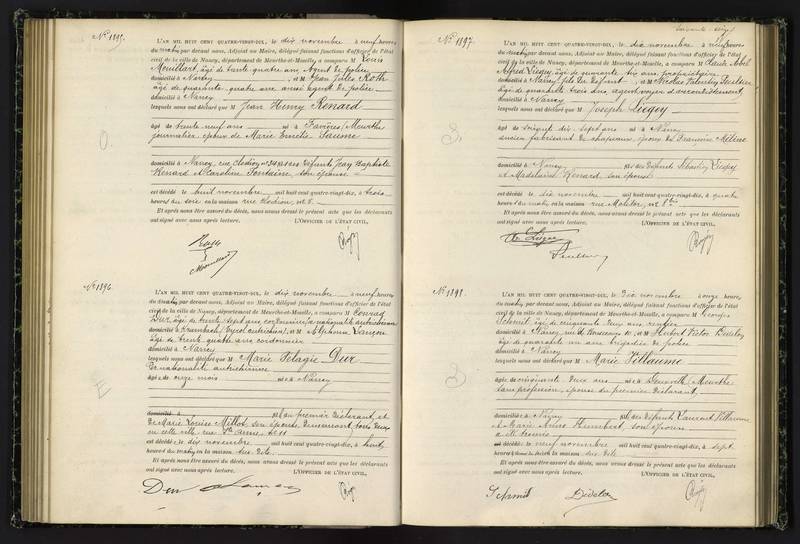 N° 1895.
L'AN MIL HUIT CENT QUATRE-VINGT-DIX, le dix novembre à neuf heures
du matin par devant nous, Adjoint au Maire, délégué faisant fonctions d'officier de l'état
civil de la ville de Nancy, département de Meurthe-et-Moselle, a comparu M Louis
Mouillart, âgé de trente quatre ans, Agent de police
domicilié à Nancy, et M Jean Jules Roth
âgé de quarante quatre ans aussi agent de police
domicilié à Nancy
lesquels nous ont déclaré que M Jean Henry Renard
âgé de trente neuf ans né à Favières (Meurthe
journalier, époux de Marie Laume
domicilié à Nancy, rue Clodion n° fils des défunts Jean Baptiste
Renard & Caroline Fontaine, son épouse
est décédé le huit novembre mil huit cent quatre-vingt-dix, à trois
heures du soir en la maison rue Clodion, n° 8.
Et après nous être assuré du décès, nous avons dressé le présent acte que les déclarants
ont signé avec nous après lecture. L'OFFICIER DE L'ÉTAT CIVIL,
Roth
Mouillart
O.
N° 1896.
L'AN MIL HUIT CENT QUATRE-VINGT-DIX, le dix novembre à neuf heures
du matin par devant nous, Adjoint au Maire, délégué faisant fonctions d'officier de l'état
civil de la ville de Nancy, département de Meurthe-et-Moselle, a comparu M Conrad
Dur, âgé de trente sept ans, cordonnier, de nationalité autrichienne
domicilié à (Tyrol autrichien), et M Alphonse Lançon
âgé de trente quatre ans cordonnier
domicilié à Nancy
lesquels nous ont déclaré que M Marie Pélagie Dur
de nationalité autrichienne
âgée de onze mois née à Nancy
domicilié à fille du premier déclarant, et
de Marie Louise Millot son épouse demeurant tous deux
en cette ville, rue Ste Anne
est décédée le dix novembre mil huit cent quatre-vingt-dix, à huit
heures du matin en la maison sus dite.
Et après nous être assuré du décès, nous avons dressé le présent acte que les déclarants
ont signé avec nous après lecture. L'OFFICIER DE L'ÉTAT CIVIL,
Dur
E
N° 1897.
L'AN MIL HUIT CENT QUATRE-VINGT-DIX, le dix novembre à neuf heures
du matin par devant nous, Adjoint au Maire, délégué faisant fonctions d'officier de l'état
civil de la ville de Nancy, département de Meurthe-et-Moselle, a comparu M Claude Abel
Alfred Liégey, âgé de quarante six ans, propriétaire
domicilié à Nancy fils du défunt, et M Nicolas Valentin
âgé de quarante trois ans, agent voyer d'arrondissement
domicilié à Nancy
lesquels nous ont déclaré que M Joseph Liégey
âgé de soixante dix-sept ans né à Nancy
ancien fabricant de chapeaux, époux de Françoise Méline
domicilié à Nancy fils des défunts Sébastien Liégey
et Madelaine Renard son épouse
est décédé le dix novembre mil huit cent quatre-vingt-dix, à quatre
heures du matin en la maison rue Molitor, n° 8 bis
Et après nous être assuré du décès, nous avons dressé le présent acte que les déclarants
ont signé avec nous après lecture. L'OFFICIER DE L'ÉTAT CIVIL,
A Liégey
N° 1898.
L'AN MIL HUIT CENT QUATRE-VINGT-DIX, le dix novembre à onze heures,
du matin, par devant nous, Adjoint au Maire, délégué faisant fonctions d'officier de l'état
civil de la ville de Nancy, département de Meurthe-et-Moselle, a comparu M Georges
Schmit, âgé de cinquante deux ans, rentier
domicilié à Nancy, et M Hubert Victor Bidelot
âgé de quarante un ans brigadier de police
domicilié à Nancy
lesquels nous ont déclaré que M Marie Villaume
âgée de cinquante deux ans née à Deuxville (Meurthe
sans profession, épouse du premier déclarant,
domiciliée à Nancy fille des défunts Laurent Villaume
& Marie Anne Humbert, son épouse
est décédée le neuf novembre mil huit cent quatre-vingt-dix, à sept
heures du soir en la maison sus dite
Et après nous être assuré du décès, nous avons dressé le présent acte que les déclarants
ont signé avec nous après lecture. L'OFFICIER DE L'ÉTAT CIVIL,
Schmit Bidelot